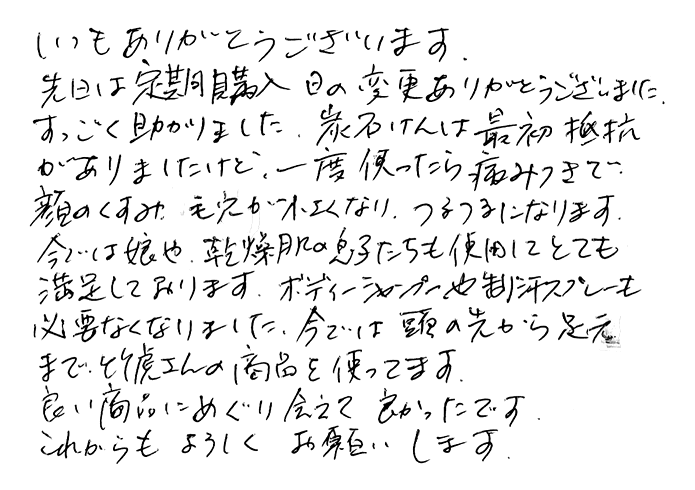 いつもありがとうございます.
先日は定期購入日の変更ありがとうございました.
すっごく助かりました. 炭石けんは最初抵抗
がありましたけど、一度使ったら病みつきで…
顔のくすみ 毛穴が小さくなり. つるつるになります.
今では娘や. 乾燥肌の息子たちも使用してとても
満足しております. ボディーシャンプーや制汗スプレーも
必要なくなりました. 今では頭の先から足元
まで. 竹虎さんの商品を使ってます.
良い商品にめぐり会えて良かったです.
これからもよろしくお願いします.